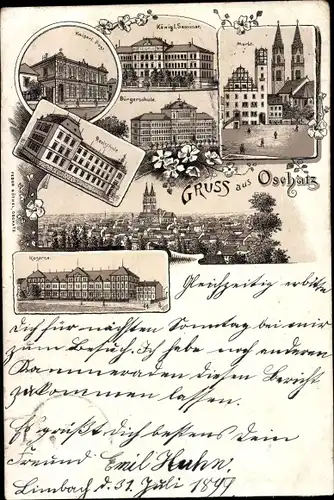 Kaiserl. Post.
Königl. Seminar.
Markt.
Bürgerschule.
Realschule
GRUSS aus Oschatz
Kaserne.
Gleichzeitig erbitte
Dich für nächsten Sonntag bei mir
zum Besuch. Ich habe noch anderen
Kammeraden diesen Bericht
zukommen lassen.
Es grüßt Dich bestens Dein
Freund Emil Huhn.
Limbach d. 31. Juli 1897